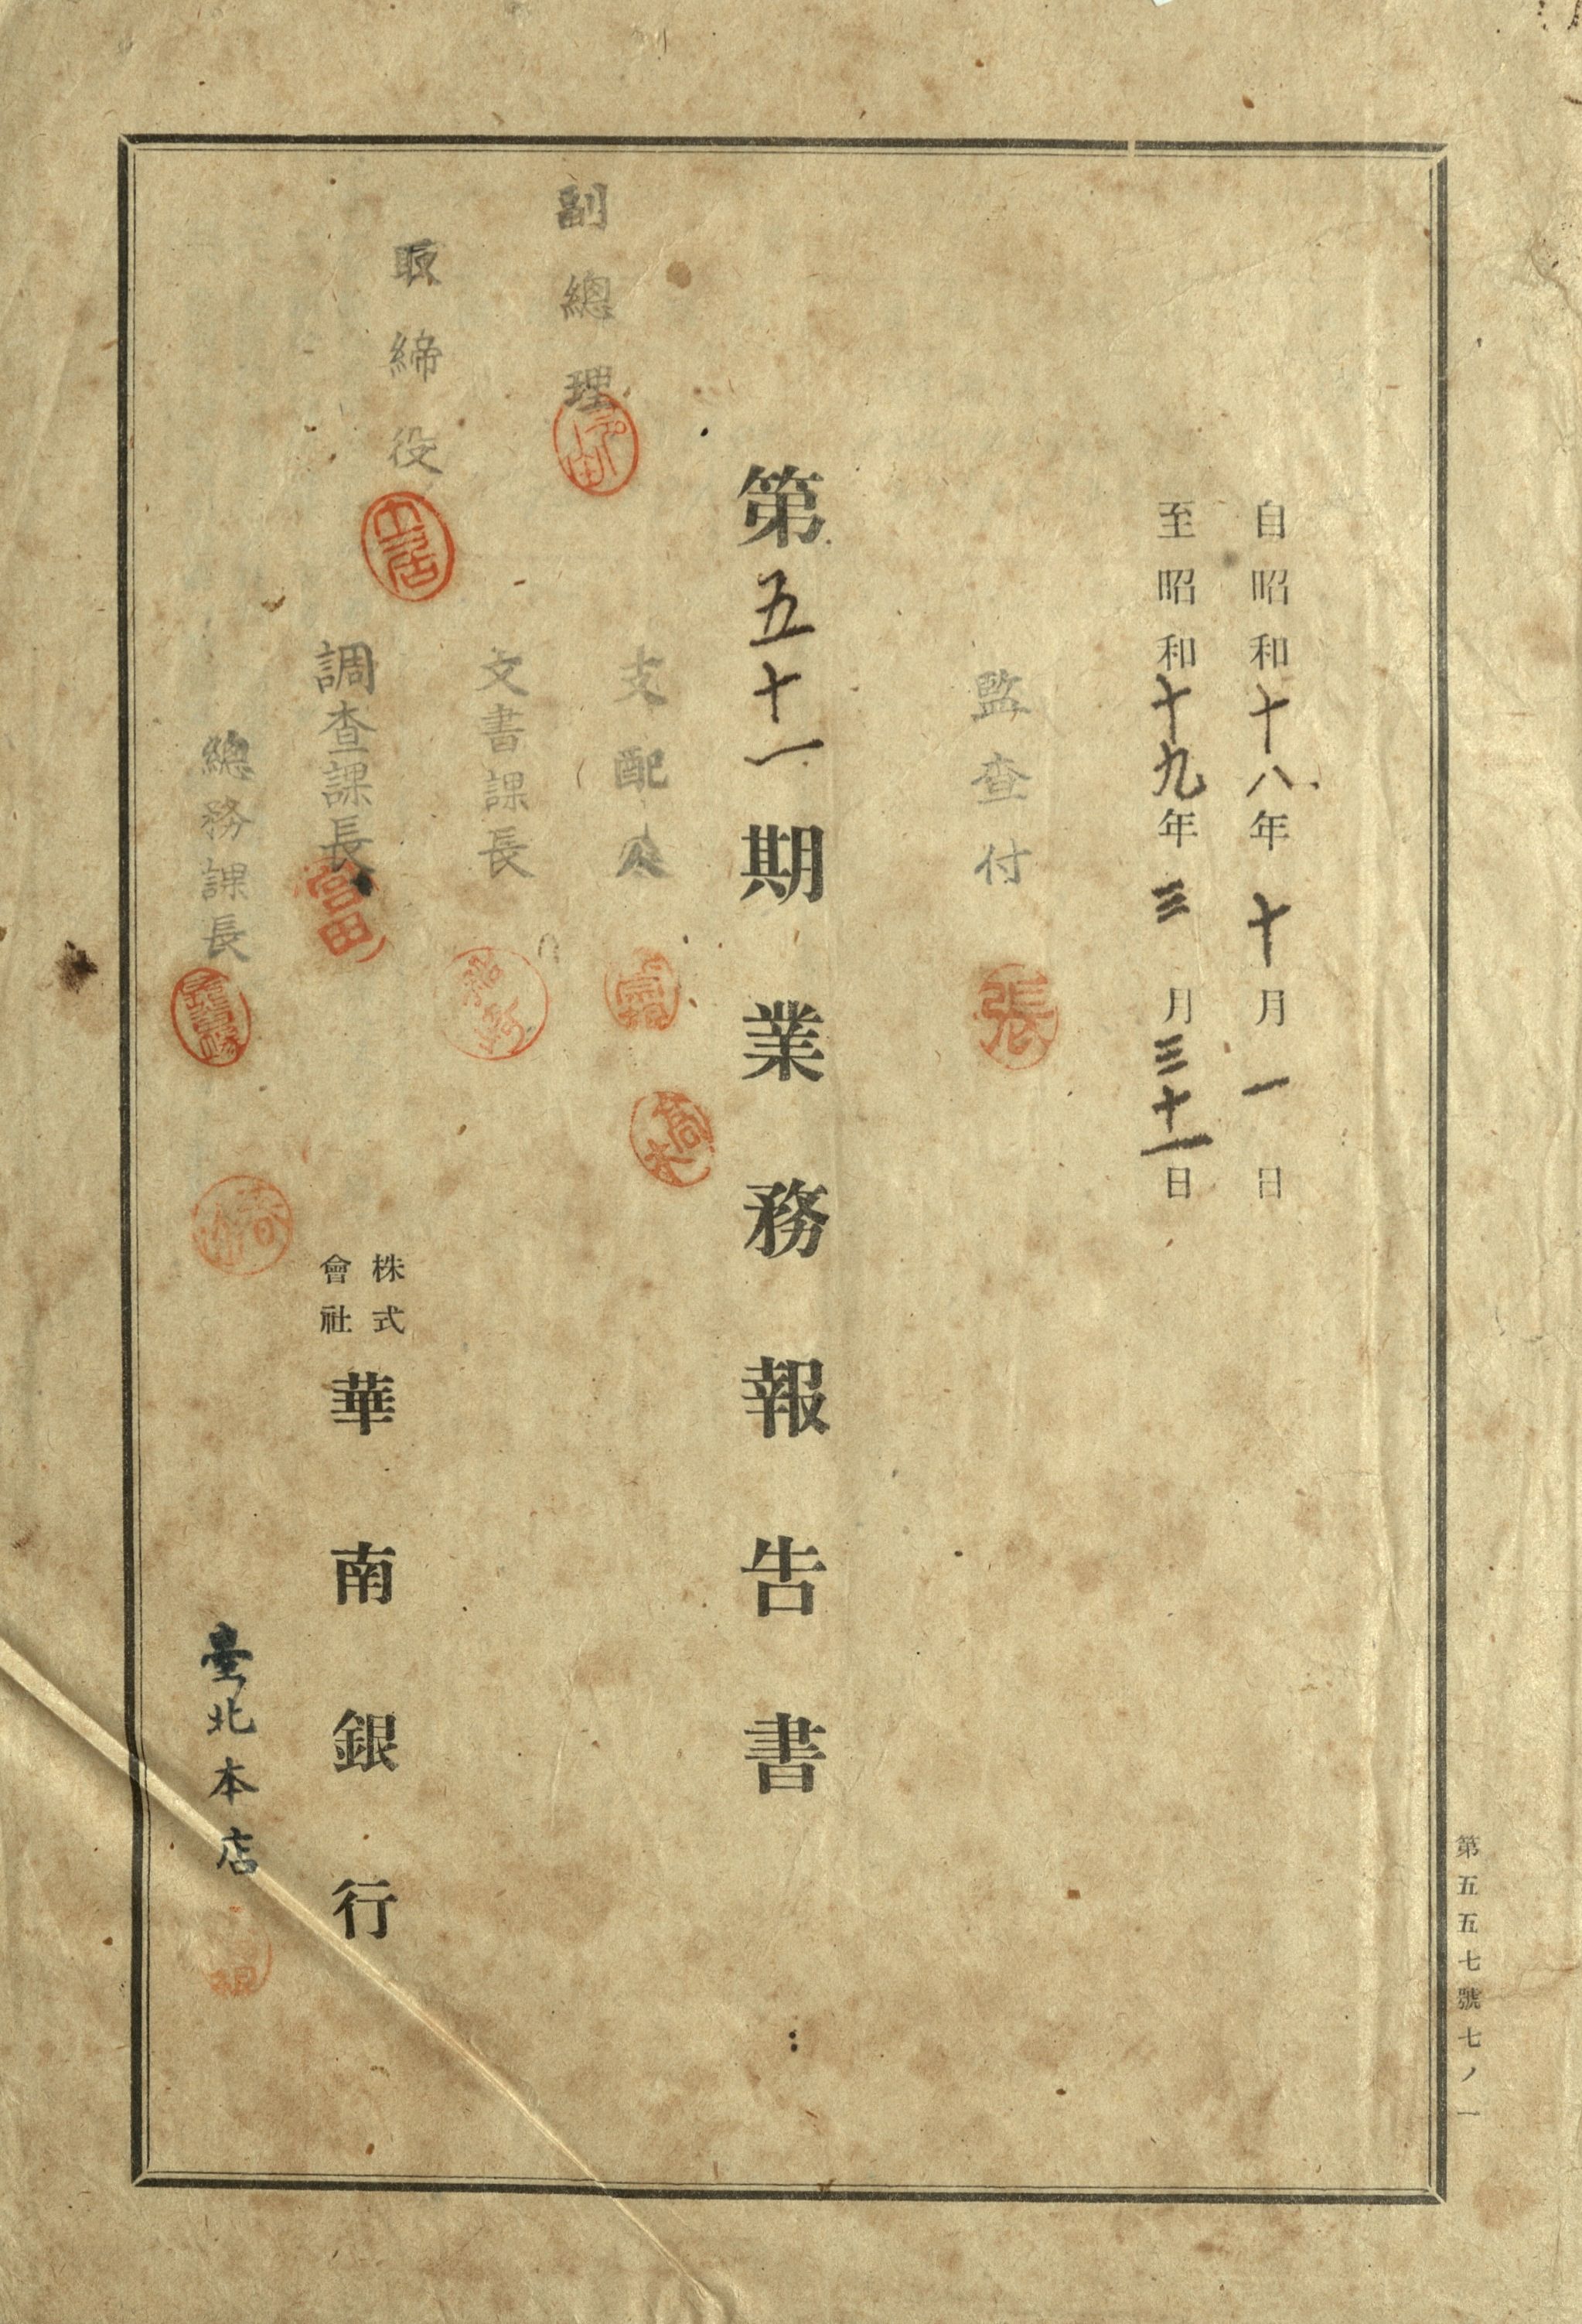 自昭和十八年十月一日
至昭和十九年三月三十一日
監查付
張
第五十一期業務報告書
副總理
支配人
高木
文書課長
取締役
土居
調查課長
富田
總務課長
株式會社華南銀行
臺北本店
第五五七號七ノ一